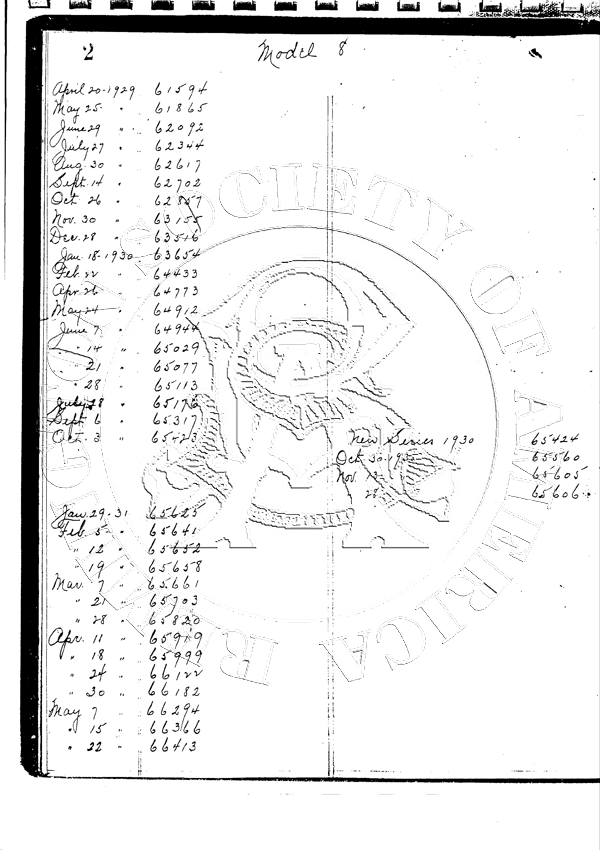 2
Model 8
April 20-1929 61594
May 25 " 61865
June 29 " 62092
July 27 " 62344
Aug. 30 " 62617
Sept. 14 " 62702
Oct. 26 " 62857
Nov. 30 " 63155
Dec. 28 " 63516
Jan. 18-1930 63654
Feb. 22 " 64433
Apr. 26 " 64773
May 24 " 64912
June 7 " 64944
" 14 " 65029
" 21 " 65077
" 28 " 65113
July 28 " 65176
Sept. 6 " 65317
Oct. 3 " 65423
New Series 1930 65424
Oct 30-19 65560
Nov. 13 65605
28 65606
Jan. 29-31 65625
Feb. 5 " 65641
" 12 " 65652
" 19 " 65658
Mar. 7 " 65661
" 21 " 65703
" 28 " 65820
Apr. 11 " 65919
" 18 " 65999
" 24 " 66122
" 30 " 66182
May 7 " 66294
" 15 " 66366
" 22 " 66413
SOCIETY OF AMERICA